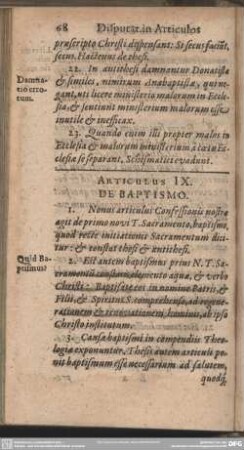 68 Disputat. in Articulos
præscripto Christi dispensant: Si secus faciāt,
secus. Hactenus de thesi.
22. In antithesi damnantur Donatistæ
& similes, nimirum Anabaptistæ, qui ne-
gant, uti licere ministerio malorum in Eccle-
sia, & sentiunt ministerium malorum esse
inutile & inefficax.
Damna-
tio erro-
rum.
23. Quando enim illi propter malos in
Ecclesia & malorum ministerium à tota Ec-
clesia se separant, Schismatici evadunt.
ARTICULUS IX.
DE BAPTISMO.
1. Nonus articulus Confessionis nostræ
agit de primo novi T. Sacramento, baptismo,
quod recte initiationis Sacramentum dici-
tur: & constat thesi & antithesi.
Quid Ba-
ptismus?
2. Est autem baptismus primum N. T. Sa-
cramentum constans elemento aquæ, & verbo
Christi: Baptisate eos in nomine Patris, &
Filii, & Spiritus S. comprehenso, ad regene-
rationem & renovationem hominis, ab ipso
Christo institutum.
3. Causæ baptismi in compendiis Theo-
logiæ exponuntur. Thesis autem articuli po-
nit baptismum esse necessarium ad salutem,
quodq;